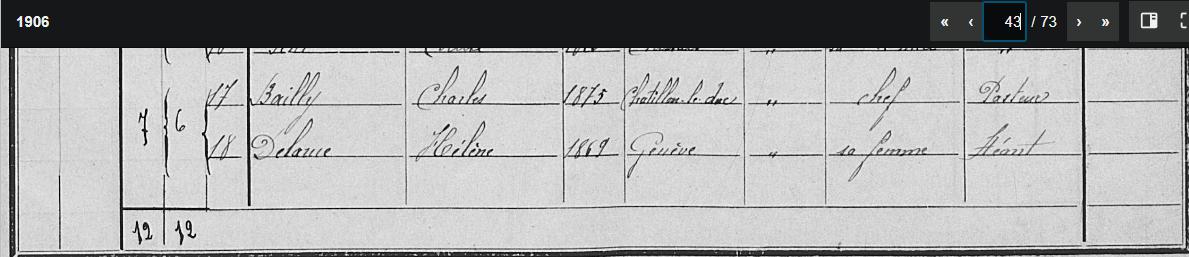 1906
« ‹ 43 / 73 › »
17 Bailly Charles 1875 Chatillon-le-duc " chef Pasteur
7 6
18 Delarue Hélène 1869 Genève " sa femme Néant
12 12